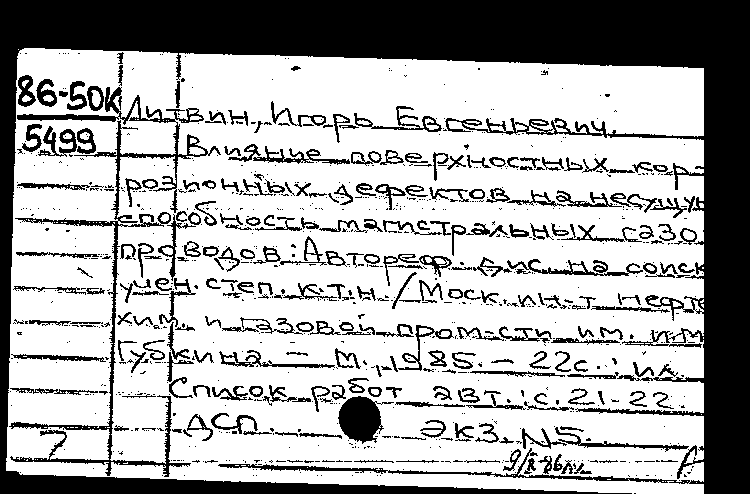 86-50К
5499
Литвин, Игорь Евгеньевич.
Влияние поверхностных кор-
розионных дефектов на несущую
способность магистральных газо
проводов: Автореф. дис. на соиск
учен. степ. к.т.н. / Моск. ин-т нефте
хим. и газовой пром-сти им. И.М
Губкина. - М., 1985. - 22с.: ил.
Список работ авт.: с. 21-22.
ДСП. Экз. N5.
7
А